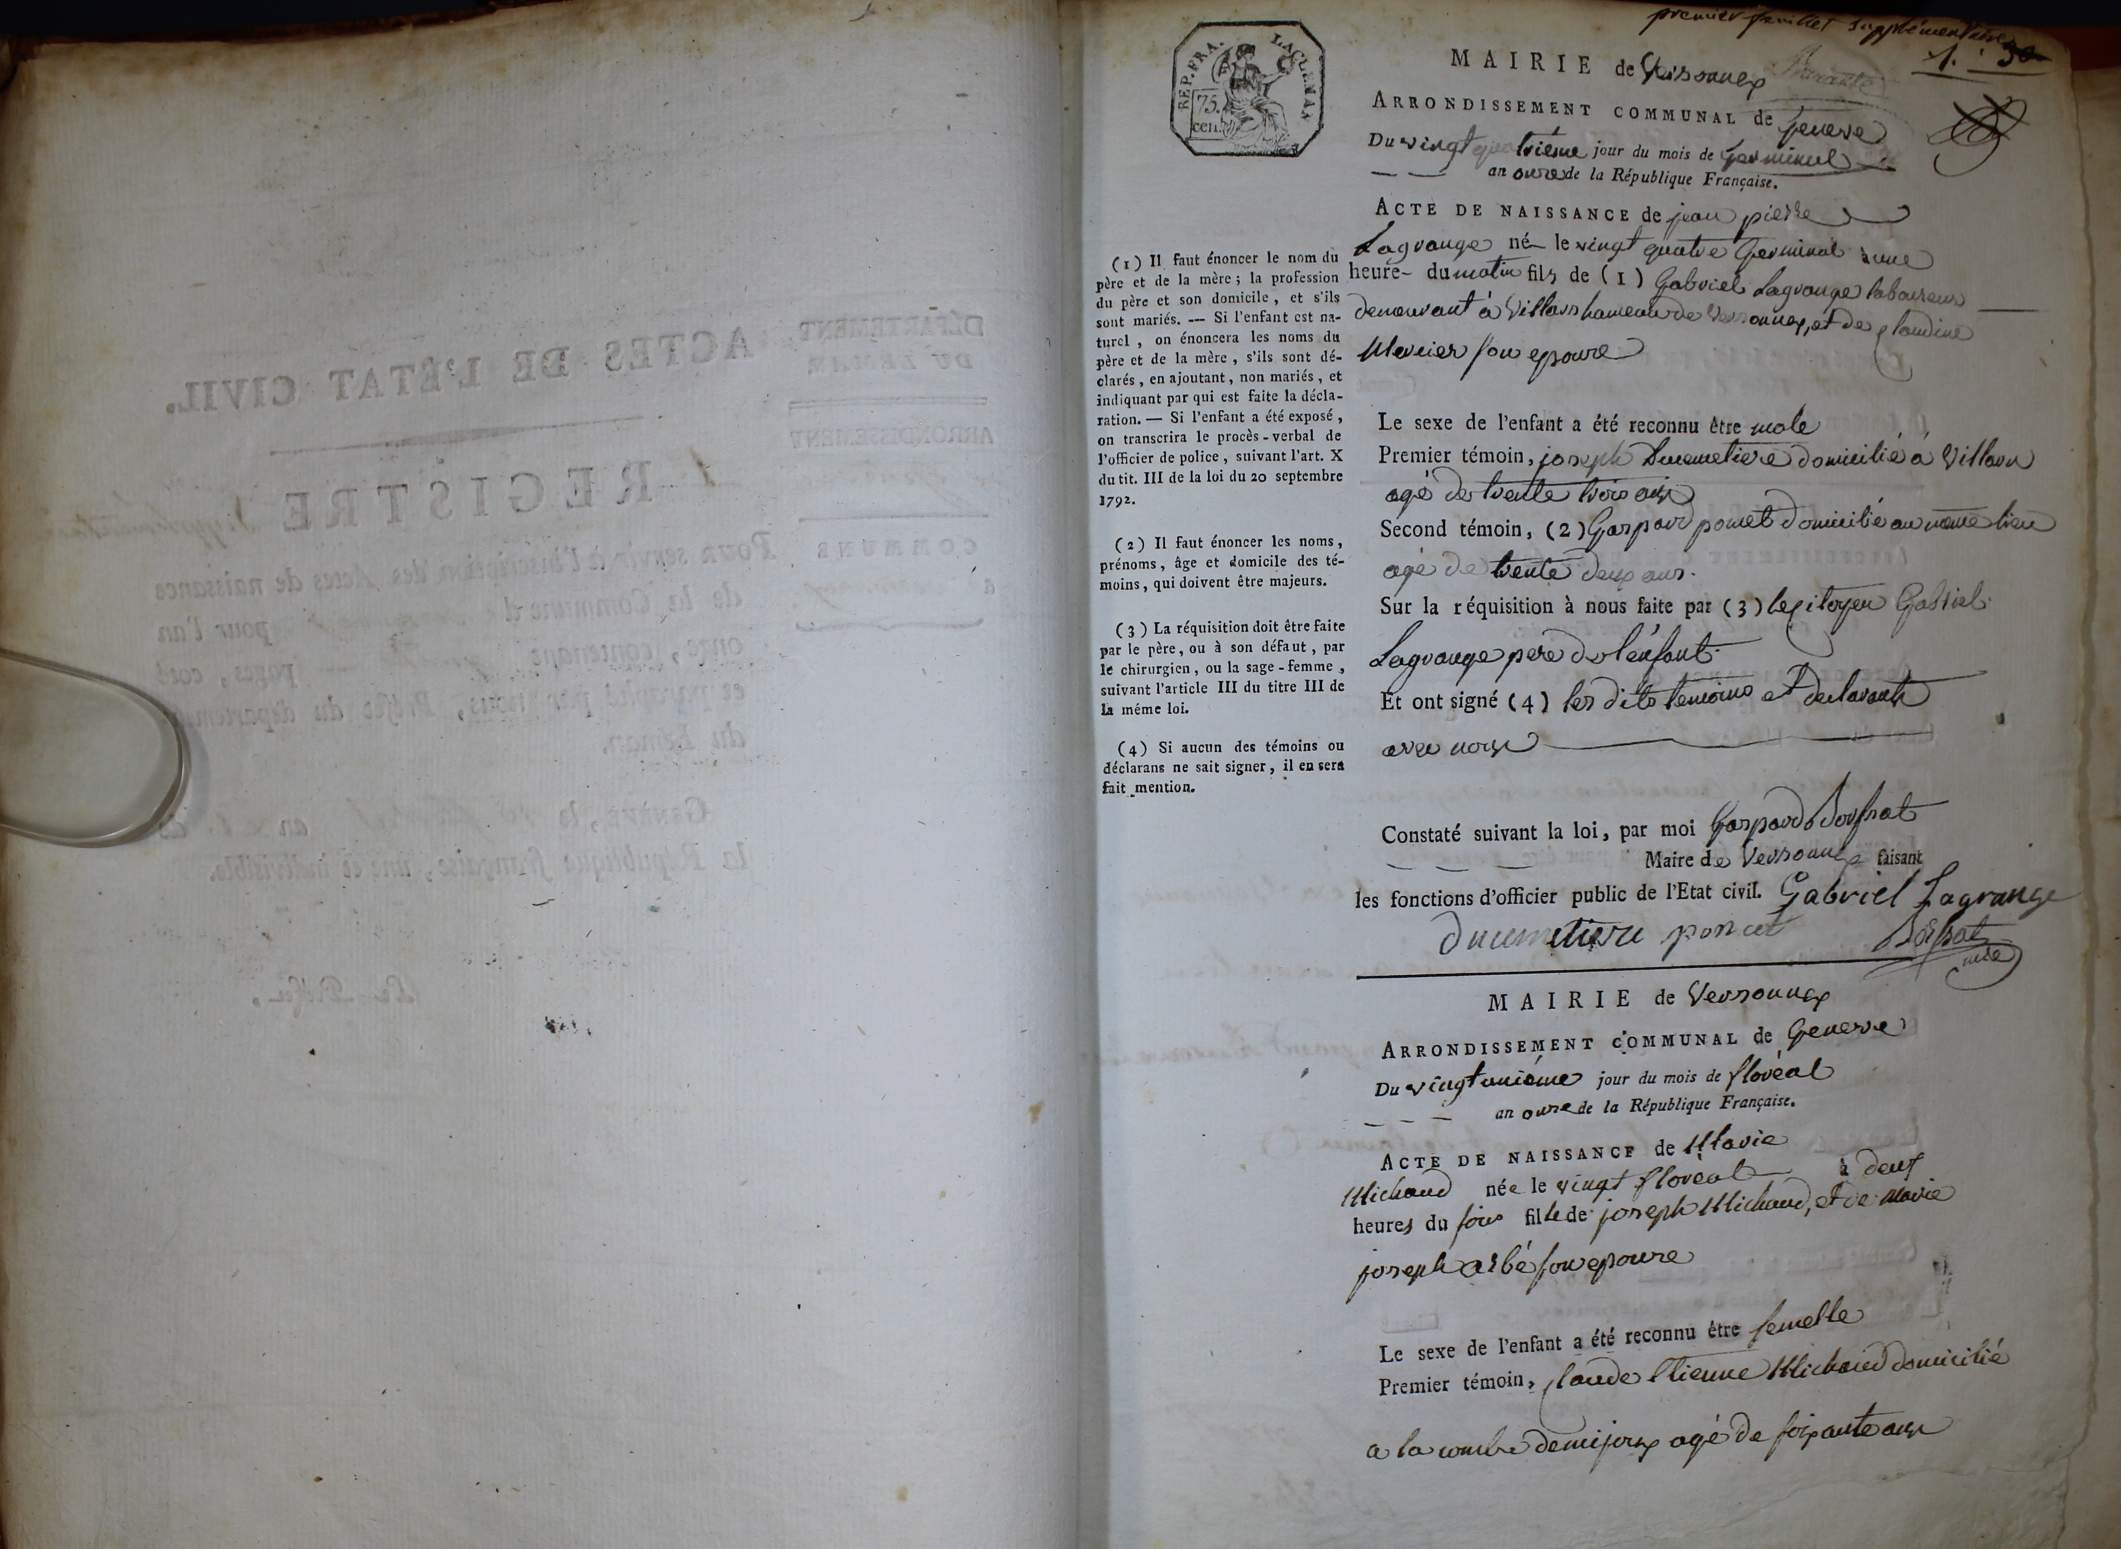 premier feuillet supplémentaire
1. 30
REP. FRA.
75.
cen.
MAIRIE de Versonnex
ARRONDISSEMENT COMMUNAL de Geneve
Du vingt quatriéme jour du mois de Germinal
an onze de la République Française.
ACTE DE NAISSANCE de jean pierre
Lagrange né le vingt quatre Germinal à une
heure du matin fils de (1) Gabriel Lagrange laboureur
demeurant à Villard hameau de Versonnex, et de Claudine
Mercier son epouse
Le sexe de l'enfant a été reconnu être male
Premier témoin, joseph Ducemetiere domicilié á Villard
agé de trente trois ans
Second témoin, (2) Gaspard poncet domicilié au même lieu
agé de trente deux ans.
Sur la réquisition à nous faite par (3) le citoyen Gabriel
Lagrange pere de l'énfant.
Et ont signé (4) les dits temoins et declarants
avec nous
Constaté suivant la loi, par moi Gaspard
Maire de Versonnex faisant
les fonctions d'officier public de l'Etat civil. Gabriel Lagrange
ducemetiere poncet
(1) Il faut énoncer le nom du
père et de la mère ; la profession
du père et son domicile, et s'ils
sont mariés. — Si l'enfant est na-
turel, on énoncera les noms du
père et de la mère, s'ils sont dé-
clarés, en ajoutant, non mariés, et
indiquant par qui est faite la décla-
ration. — Si l'enfant a été exposé,
on transcrira le procès-verbal de
l'officier de police, suivant l'art. X
du tit. III de la loi du 20 septembre
1792.
(2) Il faut énoncer les noms,
prénoms, âge et domicile des té-
moins, qui doivent être majeurs.
(3) La réquisition doit être faite
par le père, ou à son défaut, par
le chirurgien, ou la sage-femme,
suivant l'article III du titre III de
la même loi.
(4) Si aucun des témoins ou
déclarans ne sait signer, il en sera
fait mention.
MAIRIE de Versonnex
ARRONDISSEMENT COMMUNAL de Geneve
Du vingt uniéme jour du mois de floréal
an onze de la République Française.
ACTE DE NAISSANCE de Marie
Michaud née le vingt floréal à deux
heures du soir fille de joseph Michaud, et de Marie
joseph son epouse
Le sexe de l'enfant a été reconnu être femelle
Premier témoin, Claude Etienne Michaud domicilié
a la combe agé de soixante ans